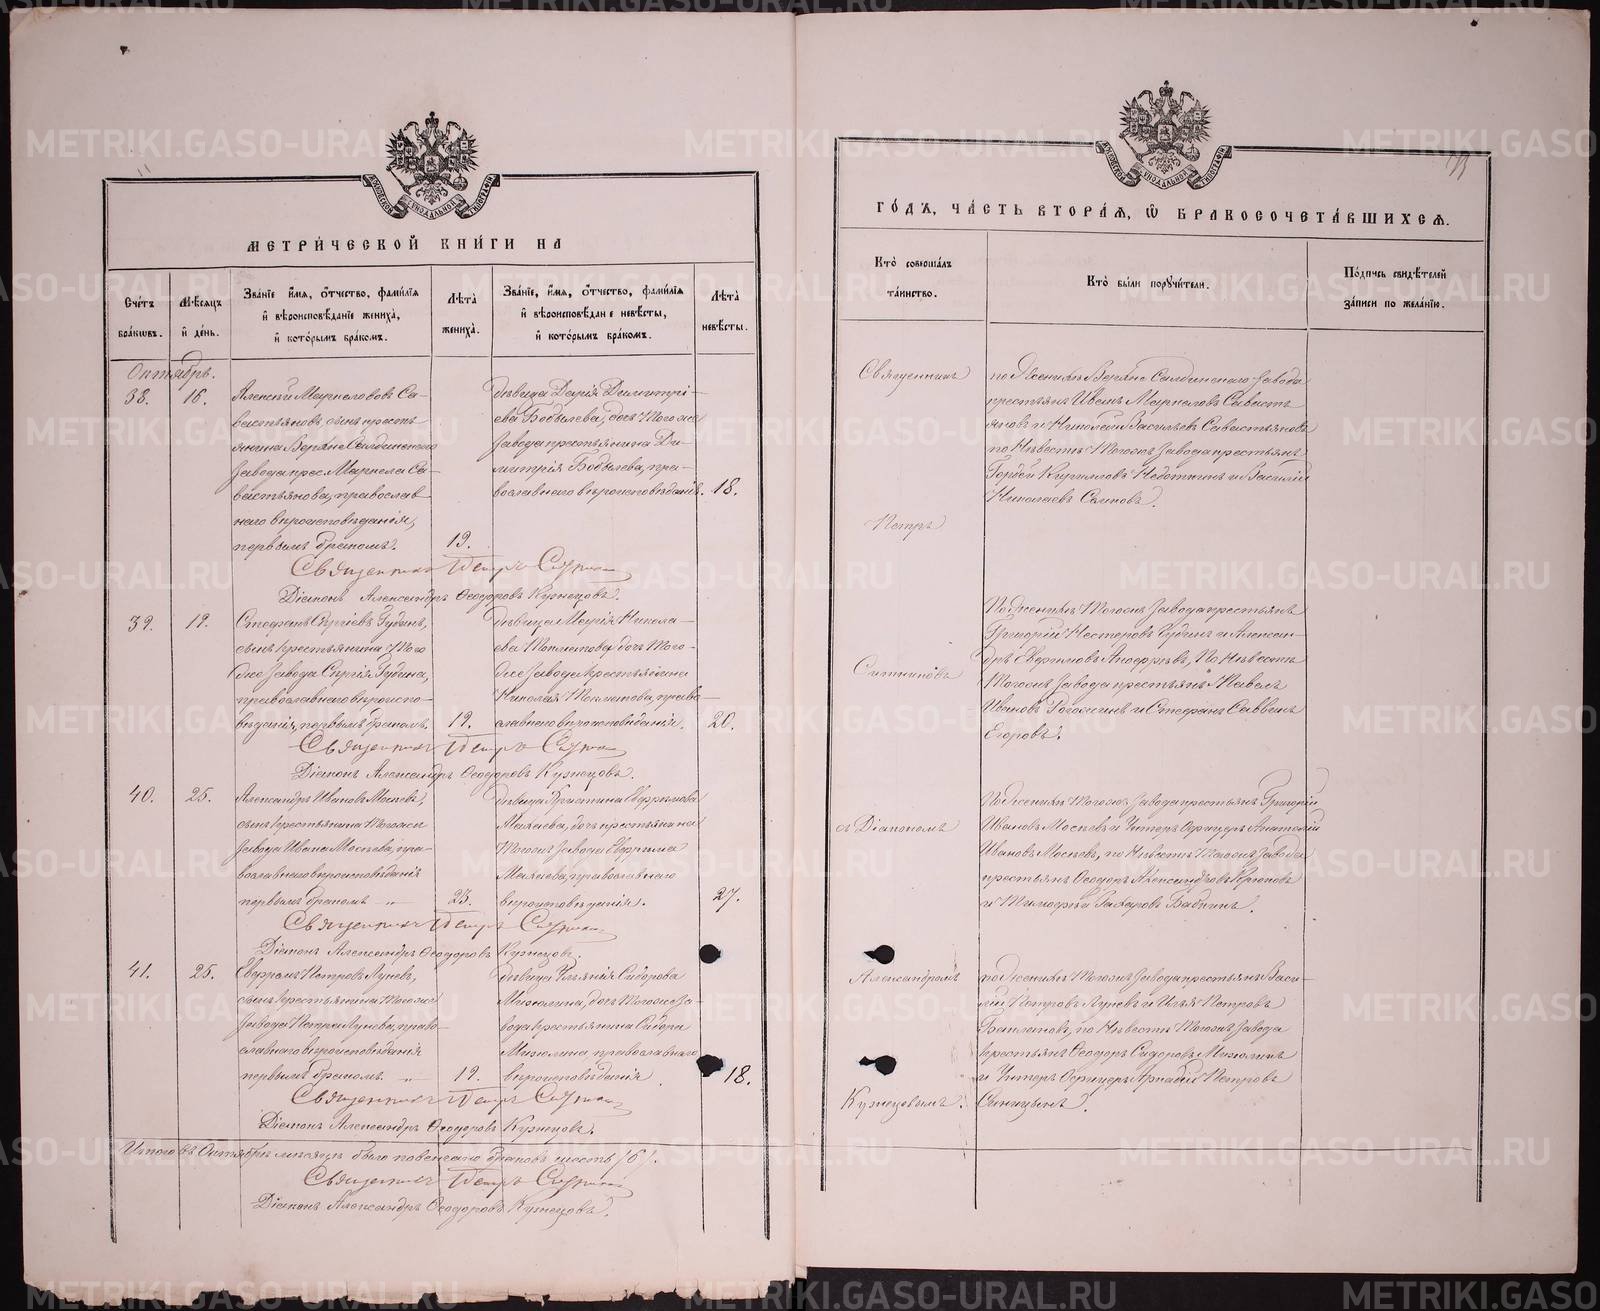 МЕТРИЧЕСКОЙ КНИГИ НА
Счетъ браковъ.
Мѣсяцъ и день.
Званіе, имя, отчество, фамилія и вѣроисповѣданіе жениха, и которымъ бракомъ.
Лѣта жениха.
Званіе, имя, отчество, фамилія и вѣроисповѣданіе невѣсты, и которымъ бракомъ.
Лѣта невѣсты.
Октябрь.
38. 16.
Алексѣй Маркеловъ Са-
вастьяновъ, сынъ кресть
янина Верхне Салдинскаго
Завода крес. Маркела Са-
вастьянова, православ-
наго вѣроисповѣданія,
первымъ бракомъ.
19.
дѣвица Дарія Димитрі-
ева Бобылева, дочь Тогоже
Завода крестьянина Ди-
митрія Бобылева, пра-
вославнаго вѣроисповѣданія.
18.
Священникъ Петръ Ситниковъ
Діаконъ Александръ Ѳеодоровъ Кузнецовъ.
39. 19.
Стефанъ Сергіевъ Гудинъ,
сынъ крестьянина Того
же Завода Сергія Гудина,
православнаго вѣроиспо-
вѣданія, первымъ бракомъ.
19.
дѣвица Марія Никола-
ева, дочь Того-
же Завода крестьянина
Николая право-
славнаго вѣроисповѣданія.
20.
Священникъ Петръ Ситниковъ
Діаконъ Александръ Ѳеодоровъ Кузнецовъ.
40. 25.
Александръ Ивановъ Мосѣевъ,
сынъ крестьянина Тогоже
Завода Ивана Мосѣева, пра-
вославнаго вѣроисповѣданія
первымъ бракомъ "
23.
дѣвица Христина Евфимова
дочь крестьянина
Тогоже Завода Евфима
православнаго
вѣроисповѣданія.
27.
Священникъ Петръ Ситниковъ
Діаконъ Александръ Ѳеодоровъ Кузнецовъ.
41. 25.
Петровъ Луневъ,
сынъ крестьянина Тогоже
Завода Петра Лунева, право-
славнаго вѣроисповѣданія
первымъ бракомъ. "
19.
дѣвица Сидорова
Мизюлина, дочь Тогоже За-
вода крестьянина Сидора
Мизюлина православнаго
вѣроисповѣданія.
18.
Священникъ Петръ Ситниковъ
Діаконъ Александръ Ѳеодоровъ Кузнецовъ.
Итого въ Октябрѣ мѣсяцѣ было повѣнчано браковъ шесть /6/.
Священникъ Петръ Ситниковъ
Діаконъ Александръ Ѳеодоровъ Кузнецовъ.
МОСКОВСКОЙ СѴНОДАЛЬНОЙ ТИПОГРАФІИ
ГОДЪ, ЧАСТЬ ВТОРАЯ, Ѿ БРАКОСОЧЕТАВШИХСЯ.
Кто совершалъ таинство.
Кто были поручители.
Подпись свидѣтелей записи по желанію.
Священникъ
Петръ
Ситниковъ
съ Діакономъ
Александромъ
Кузнецовымъ.
по Женихѣ Верхне Салдинскаго Завода
крестьяне Иванъ Маркеловъ Савасть
яновъ и Николай Васильевъ Савастьяновъ
по Невѣстѣ Тогоже Завода крестьяне
Гордѣй Кирилловъ и Василій
Николаевъ
По Женихѣ Тогоже Завода крестьяне
Григорій Нестеровъ Гудинъ и Алексан-
дръ По Невѣстѣ
Тогоже Завода крестьяне Павелъ
Ивановъ и Стефанъ Саввинъ
Егоровъ.
По Женихѣ Тогоже Завода крестьяне Григорій
Ивановъ Мосѣевъ и Унтеръ Офицеръ Анатолій
Ивановъ Мосѣевъ, по Невѣстѣ Тогоже Завода
крестьяне Ѳеодоръ Александровъ Крюковъ
и Тимофѣй Захаровъ Бабкинъ.
по Женихѣ Тогоже Завода крестьяне Васи-
лій Петровъ Луневъ и Илья Петровъ
по Невѣстѣ Тогоже Завода
крестьяне Ѳеодоръ Сидоровъ Мизюлинъ
и Унтеръ Офицеръ Аркадій Петровъ
Синицынъ.
METRIKI.GASO-URAL.RU